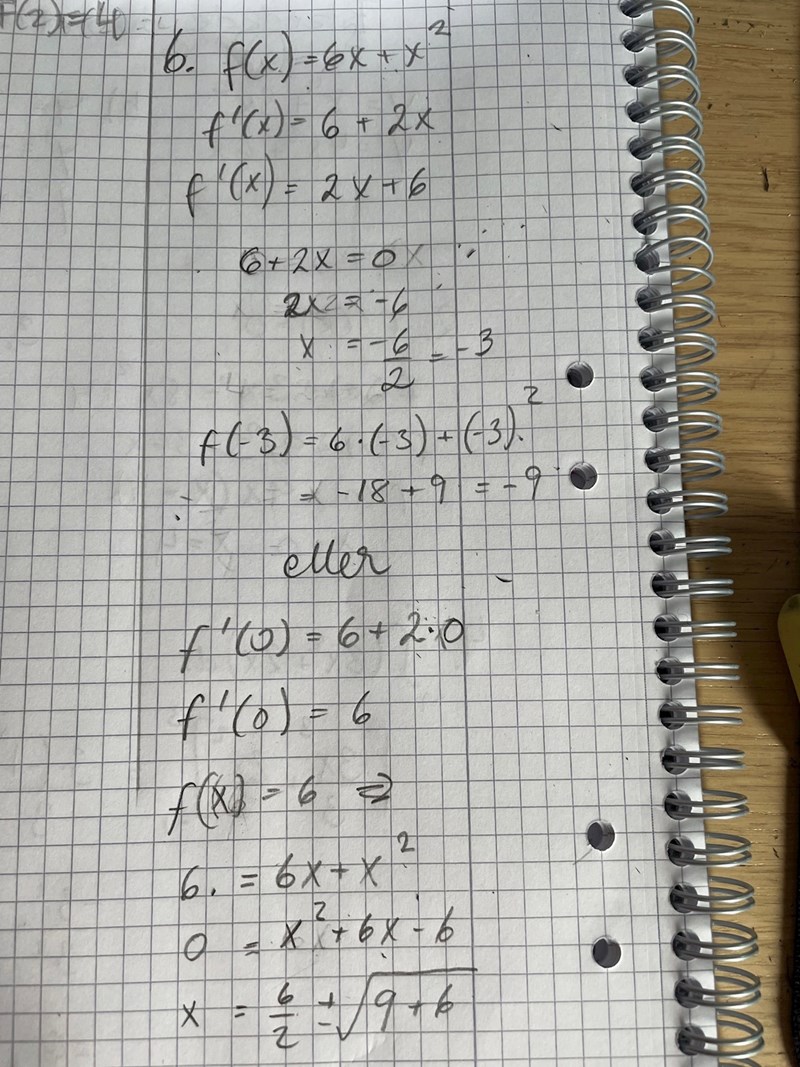 6. f(x) = 6x + x²
f'(x) = 6 + 2x
f'(x) = 2x + 6
6 + 2x = 0
2x = -6
x = -6/2 = -3
f(-3) = 6·(-3) + (-3)²
= -18 + 9 = -9
eller
f'(0) = 6 + 2·0
f'(0) = 6
f(x) = 6 ⇒
6. = 6x + x²
0 = x² + 6x - 6
x = 6/2 ± √(9+6)